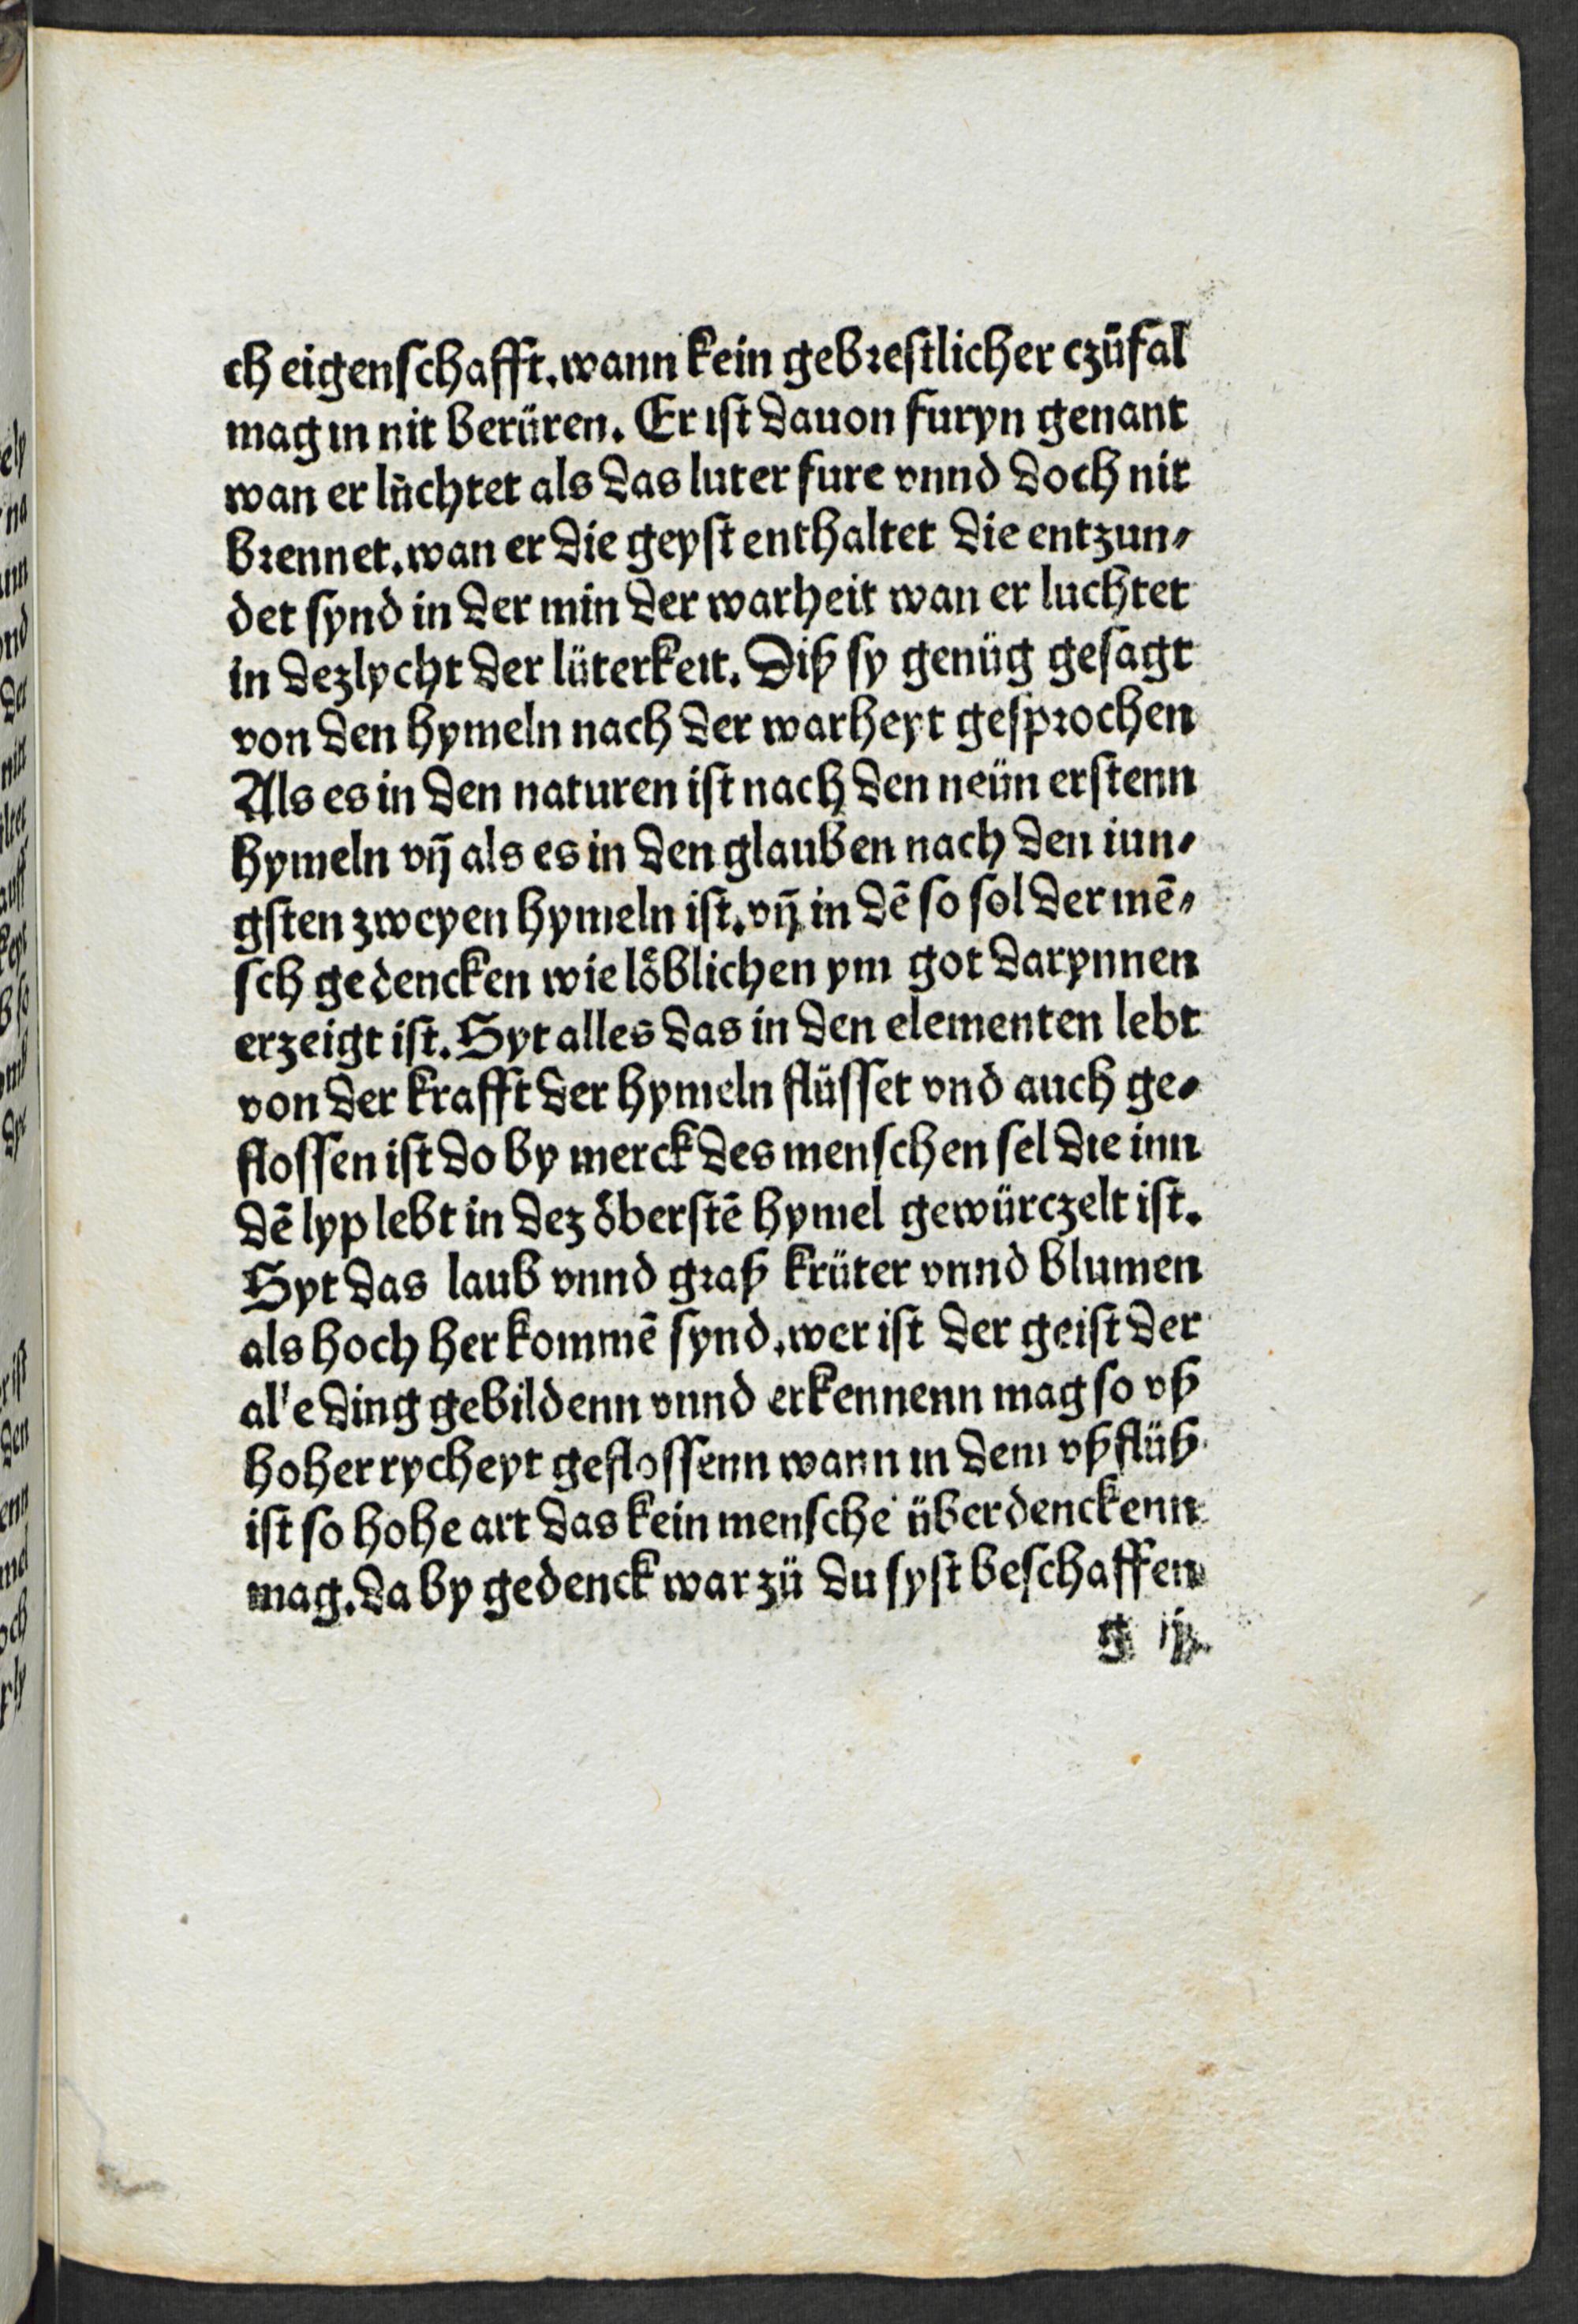 ch eigenschafft. wann kein gebrestlicher czüfal
mag in nit berüren. Er ist dauon furyn genant
wan er lüchtet als das luter fure vnnd doch nit
brennet. wan er die geyst enthaltet die entzun⸗
det synd in der min der warheit wan er luchtet
in dez lycht der lüterkeit. Diß sy genüg gesagt
von den hymeln nach der warheyt gesprochen
Als es in den naturen ist nach den neün erstenn
hymeln vn̄ als es in den glauben nach den iun⸗
gsten zweyen hymeln ist. vn̄ in dē so sol der mē⸗
sch gedencken wie löblichen ym got darynnen
erzeigt ist. Syt alles das in den elementen lebt
von der krafft der hymeln flüsset vnd auch ge⸗
flossen ist do by merck des menschen sel die inn
dē lyp lebt in dez öberstē hymel gewürczelt ist.
Syt das laub vnnd graß krüter vnnd blumen
als hoch her kommē synd. wer ist der geist der
alle ding gebildenn vnnd erkennenn mag so vß
hoher rycheyt geflossenn wann in dem vßflüß
ist so hohe art das kein mensche überdenckenn
mag. da by gedenck war zü du syst beschaffen
g